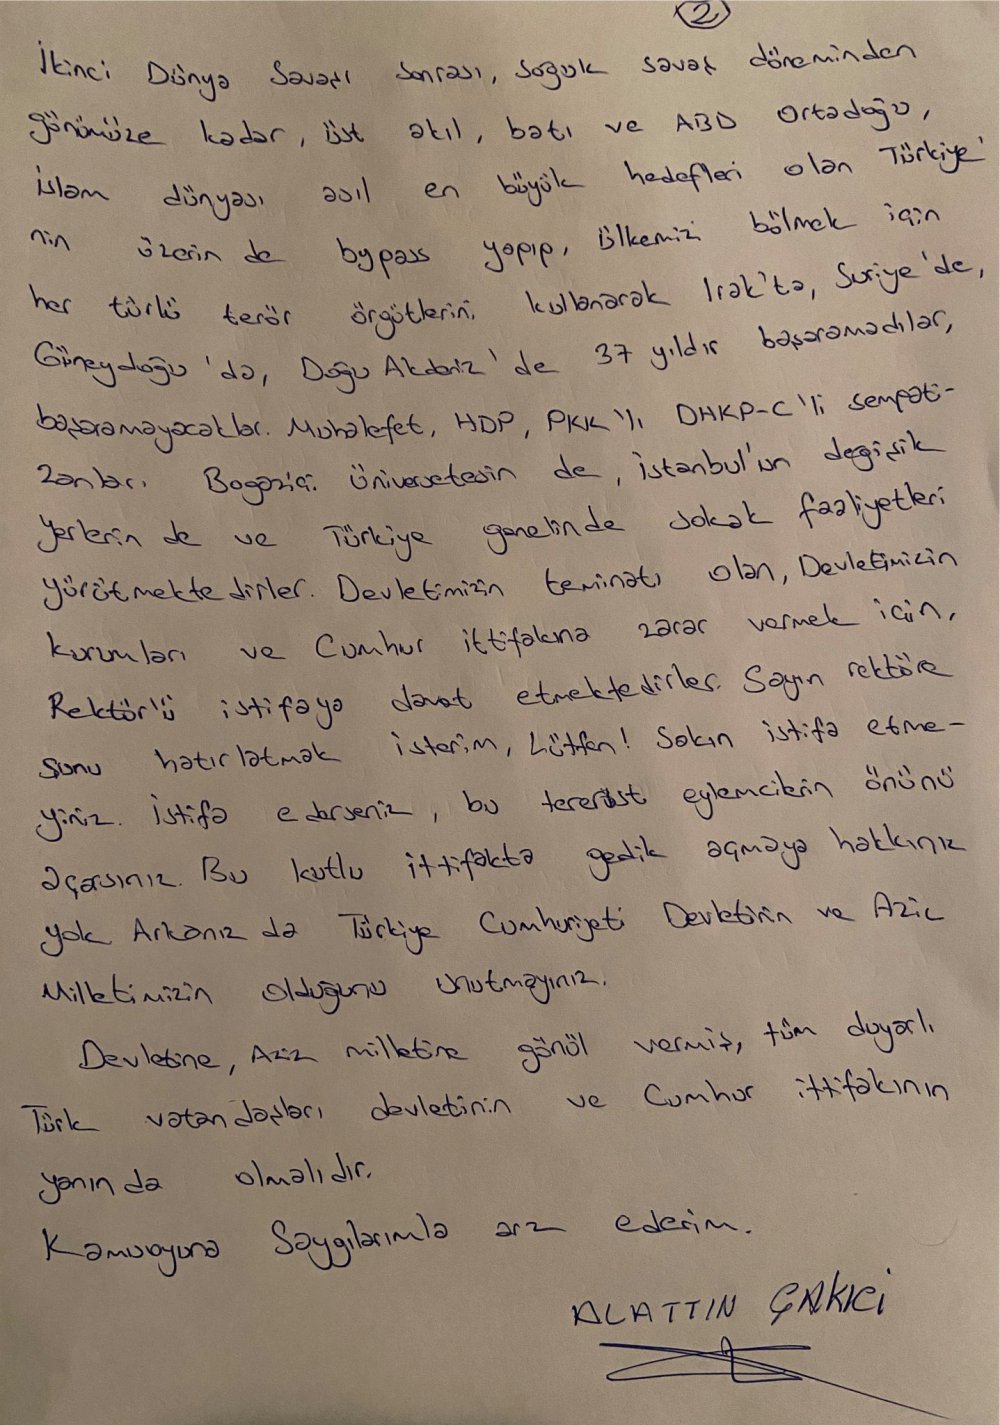 2
İkinci Dünya Savaşı sonrası, soğuk savaş döneminden
günümüze kadar, üst akıl, batı ve ABD Ortadoğu,
İslam dünyası asıl en büyük hedefleri olan Türkiye'
nin üzerin de bypass yapıp, ülkemizi bölmek için
her türlü terör örgütlerini kullanarak Irak'ta, Suriye'de,
Güneydoğu'da, Doğu Akdeniz'de 37 yıldır başaramadılar,
başaramayacaklar. Muhalefet, HDP, PKK'lı DHKP-C'li sempati-
zanları Bogaziçi Üniversetesin de, İstanbul'un değişik
yerlerin de ve Türkiye genelinde sokak faaliyetleri
yürütmektedirler. Devletimizin teminatı olan, Devletimizin
kurumları ve Cumhur ittifakına zarar vermek için,
Rektör'ü istifaya davet etmektedirler. Sayın rektöre
şunu hatırlatmak isterim, Lütfen! Sakın istifa etme-
yiniz. İstifa ederseniz, bu terörist eylemcilerin önünü
açarsınız. Bu kutlu ittifakta gedik açmaya hakkınız
yok. Arkanız da Türkiye Cumhuriyeti Devletinin ve Aziz
Milletimizin olduğunu unutmayınız.
Devletine, Aziz milletine gönül vermiş, tüm duyarlı
Türk vatandaşları devletinin ve Cumhur ittifakının
yanında olmalıdır.
Kamuoyuna Saygılarımla arz ederim.
ALATTİN ÇAKICI